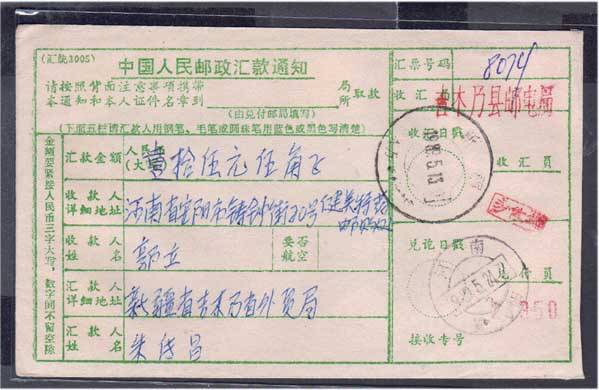 (汇统1005)
中国人民邮政汇款通知
请按照背面注意事项携带
本通知和本人证件名章到
局
所
取款
(由兑付邮局填写)
(下面五栏请汇款人用钢笔、毛笔或圆珠笔用蓝色或黑色写清楚)
金额要紧接人民币三字大写，数字间不留空隙
汇款金额
人民币
(大写)
壹拾伍元伍角
收款人
详细地址
河南省
市
街20号
收款人
姓名
郭立
要否
航空
汇款人
详细地址
新疆省吉木乃县外贸局
汇款人
姓名
朱
昌
汇票号码
8074
收汇
吉木乃县邮电局
收汇日戳
收汇员
兑讫日戳
兑付员
350
接收专号